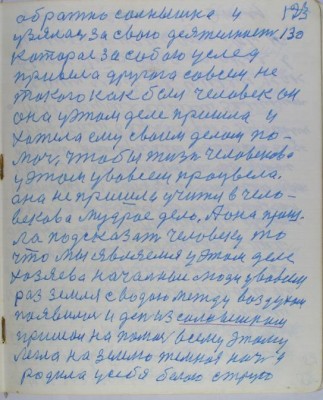 обратно солнышка и 173
взялас за свою деятелност 130
которая за собою услед
привела другога совсем не
такого как был человек он
она у этом деле пришла и
хотела ему своим делом по-
моч, чтобы жизн человекова
у этом увовсем процвела.
она не пришла учити в чело-
векова мудрое дело, А она приш-
ла подсказат человеку то
что мы являемся у этом деле
хозяева началные люди увовсем
раз земля с водою между воздухом
появилися и ден из солнышкым
пришли на помоч всему этому
легла на землю темная ноч я
родила у себя белою струю